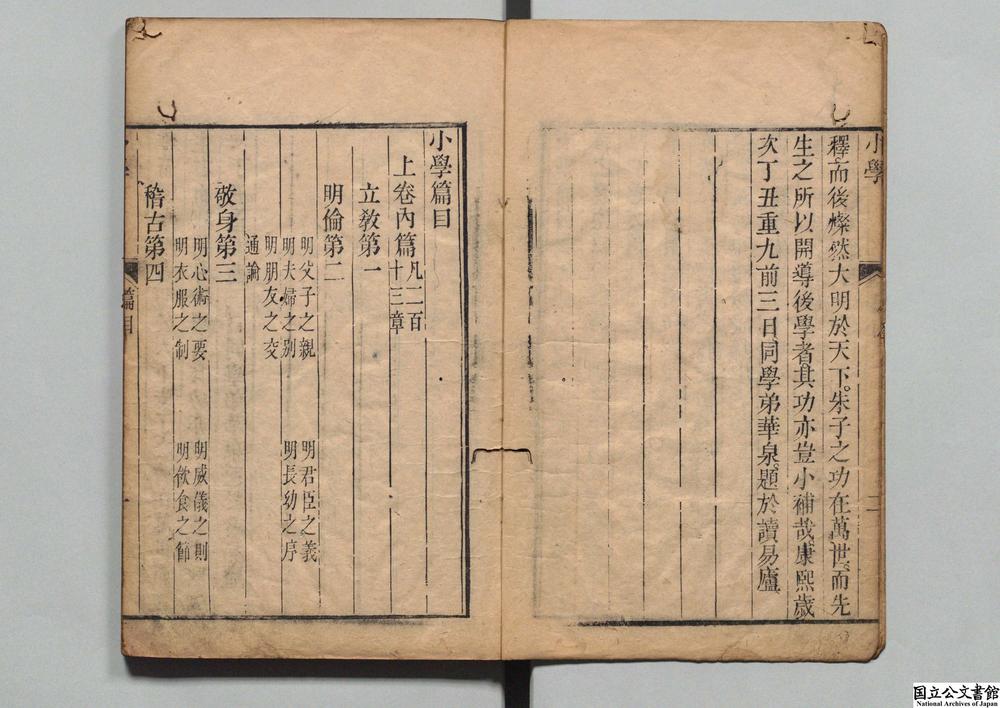 小學
釋而後燦然大明於天下。朱子之功在萬世。而先
生之所以開導後學者。其功亦豈小補哉。康熙歲
次丁丑重九前三日。同學弟華泉。題於讀易廬
二
小學篇目
上卷內篇凡二百
十三章
立敎第一
明倫第二
明父子之親 明君臣之義
明夫婦之別 明長幼之序
明朋友之交
通論
敬身第三
明心術之要 明威儀之則
明衣服之制 明飲食之節
稽古第四
篇目
国立公文書館
National Archives of Japan